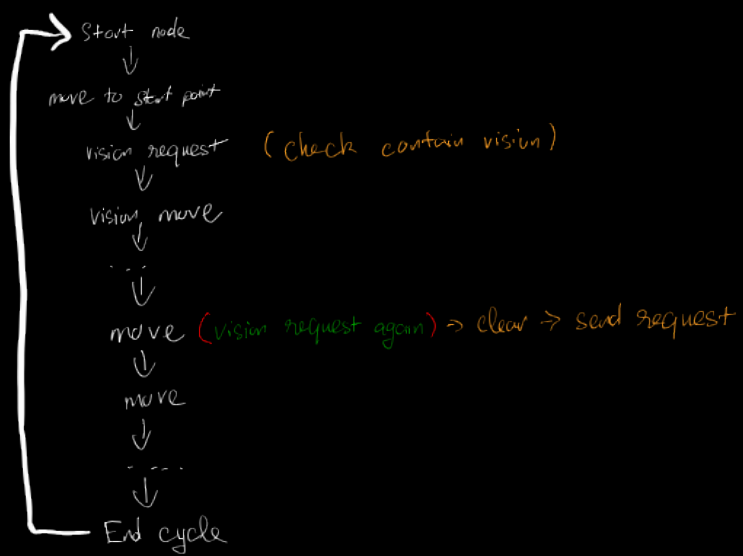 Start node
move to start point
vision request (check contain vision)
vision move
....
move (vision request again) -> clear -> send request
move
.....
End cycle